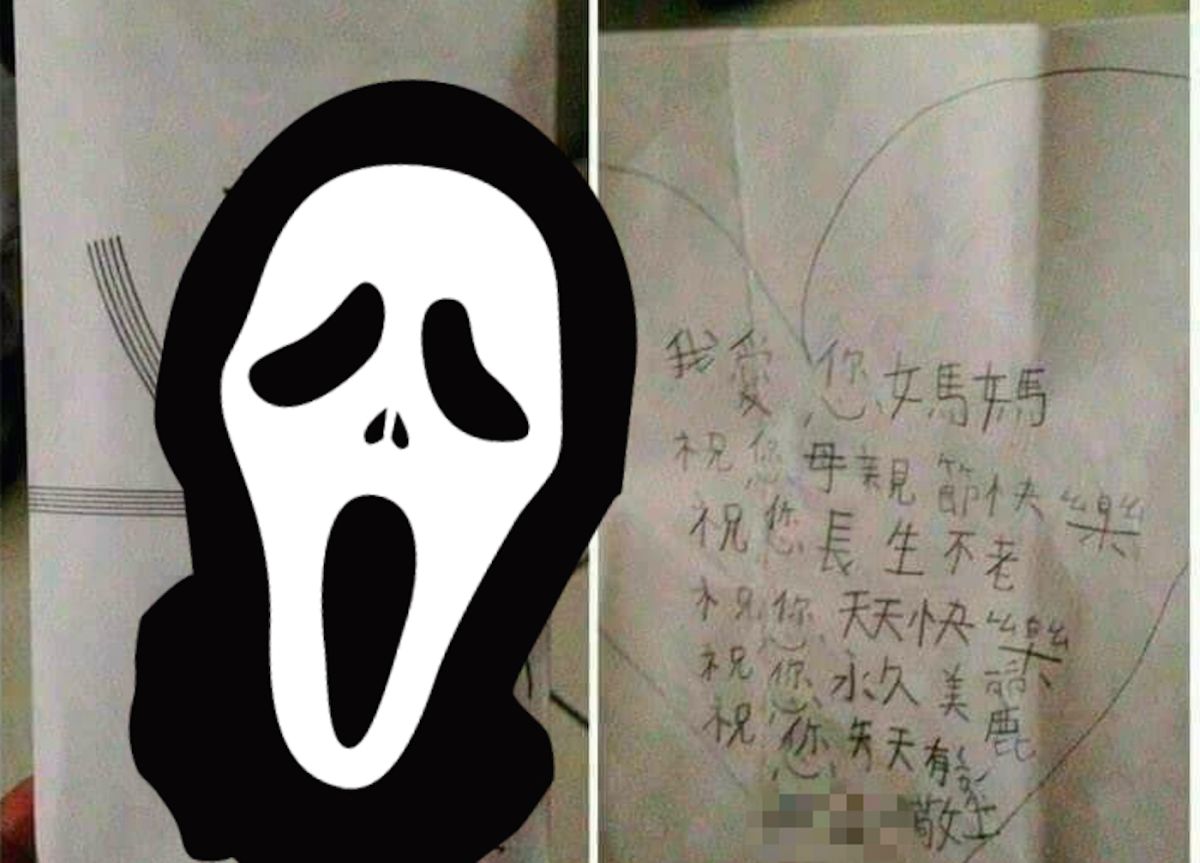 我愛您媽媽
祝您母親節快樂
祝您長生不老
祝您天天快樂
祝您永久美麗
祝您天天有
敬上